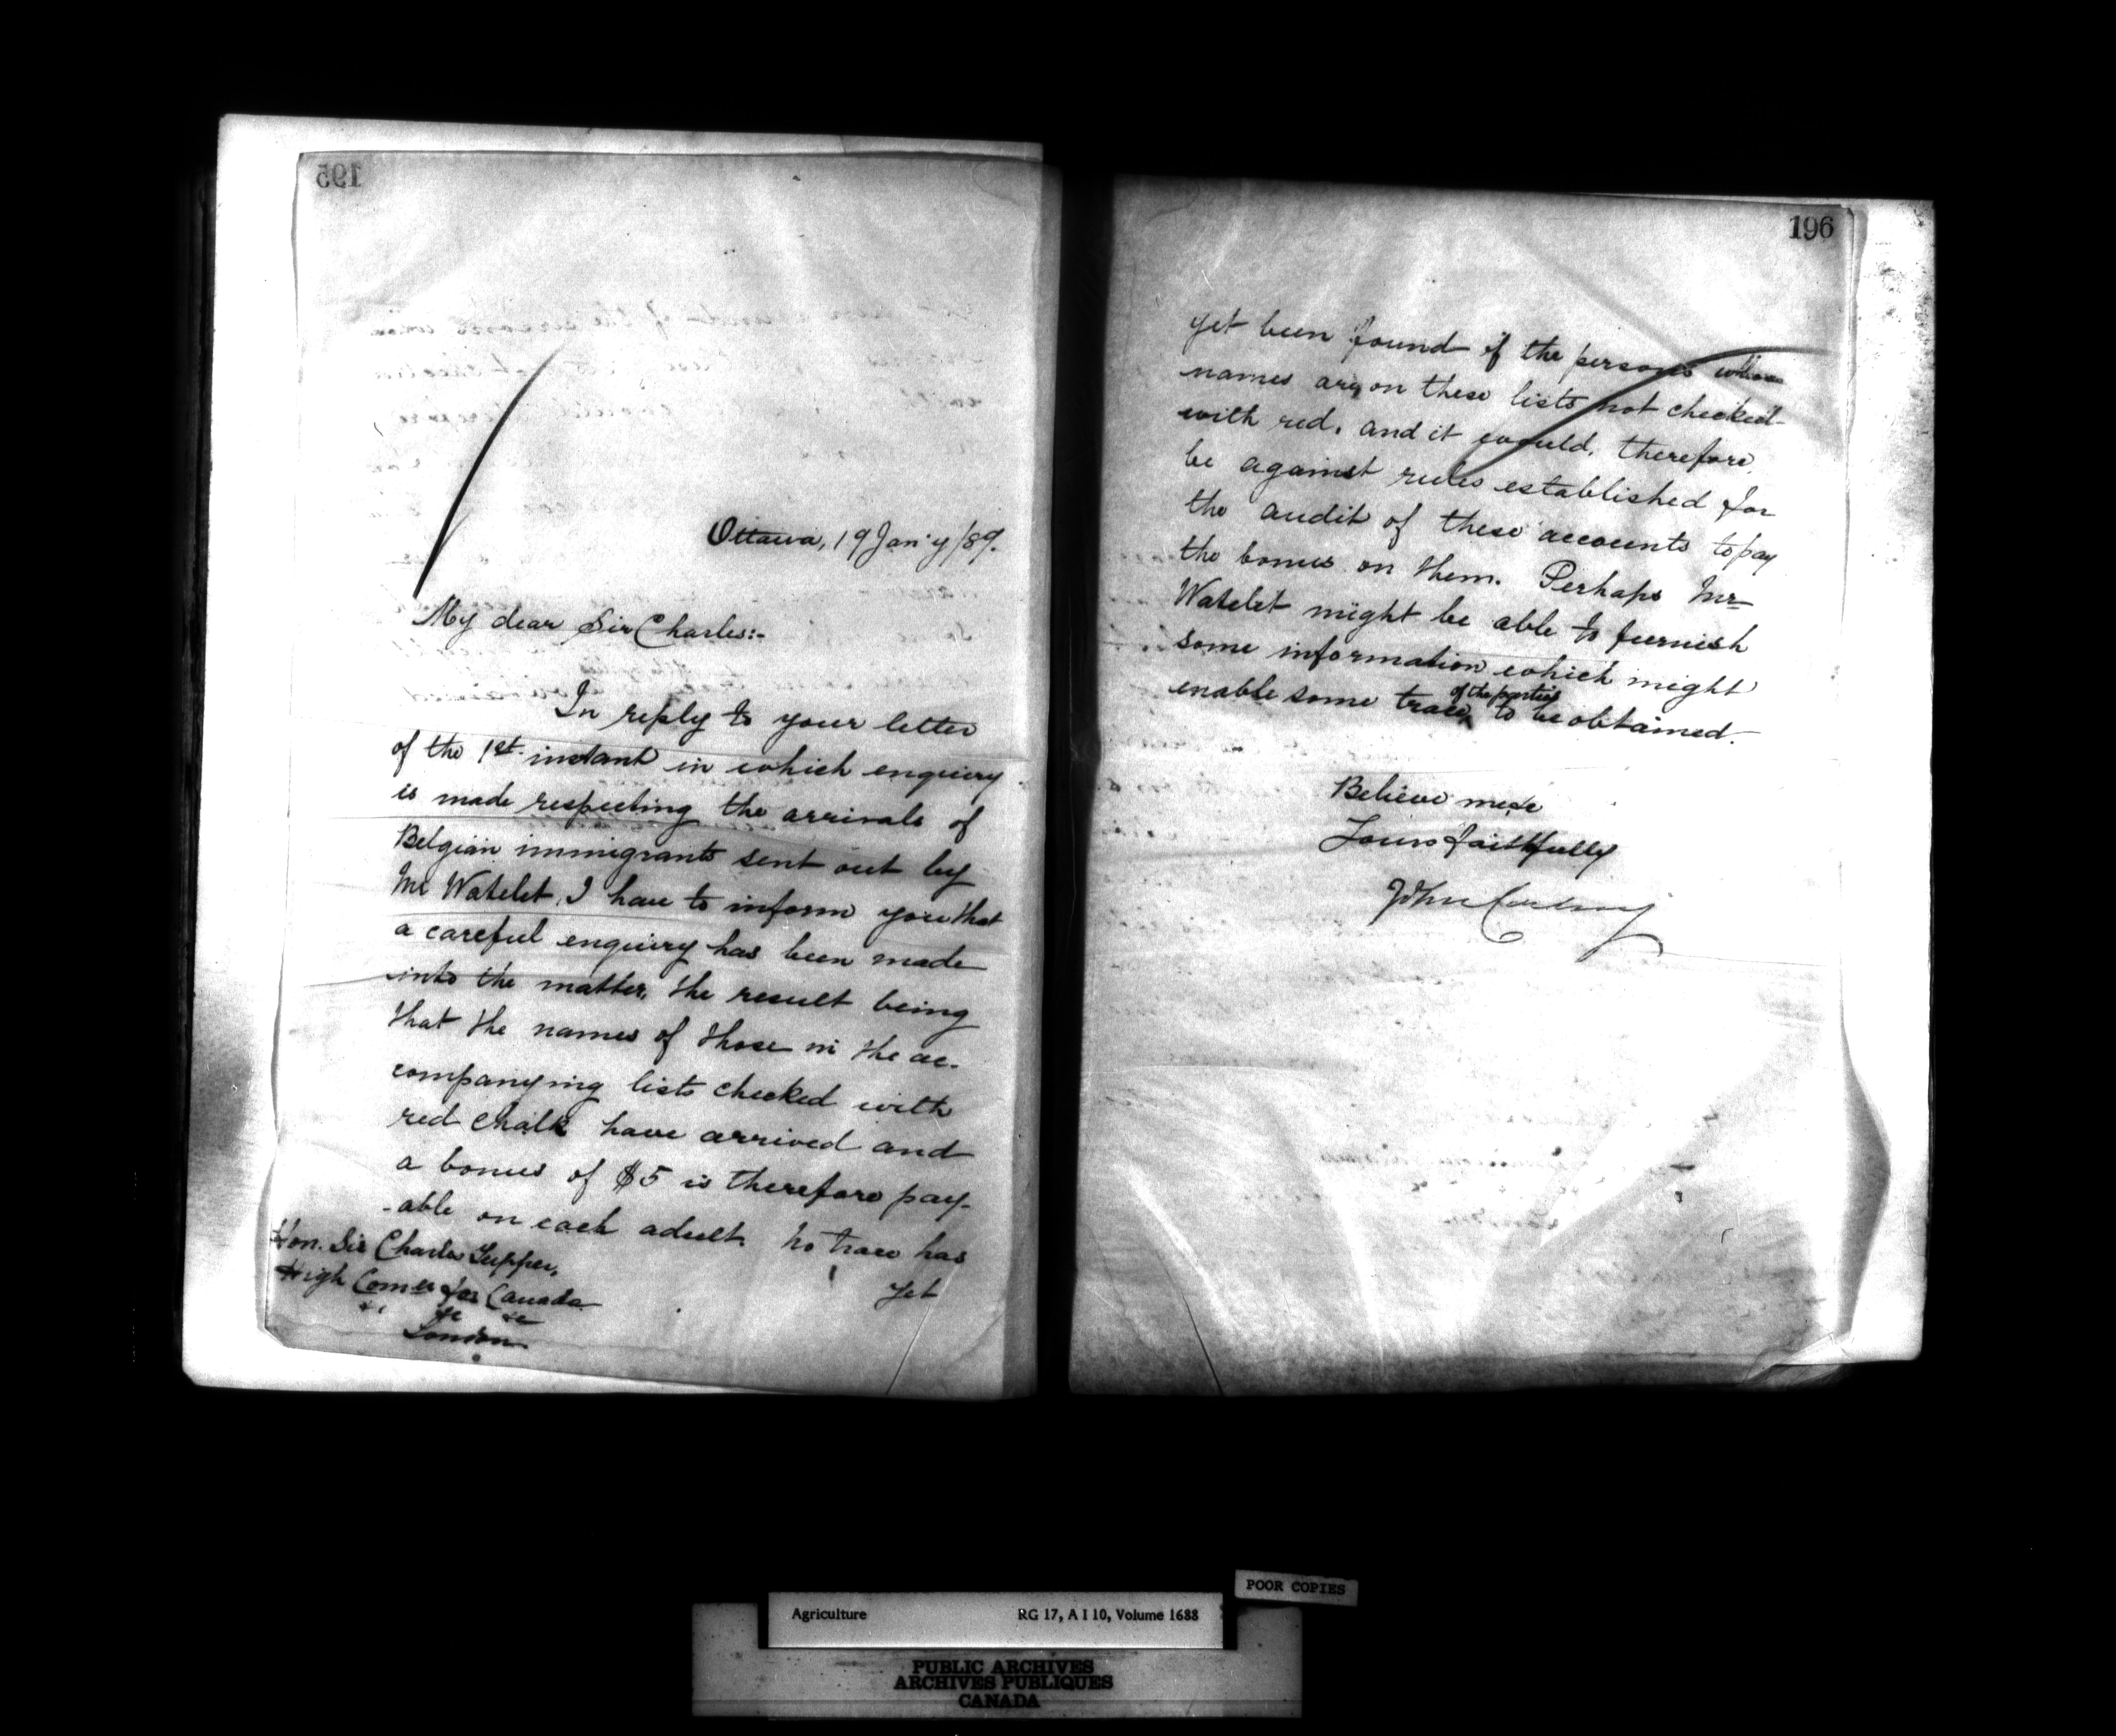 195
Ottawa, 19 Jan'y /89.
My dear Sir Charles:-
In reply to your letter
of the 1st. instant in which enquiry
is made respecting the arrivals of
Belgian immigrants sent out by
Mr Watelet, I have to inform you that
a careful enquiry has been made
into the matter, the result being
that the names of those in the ac-
companying lists checked with
red chalk have arrived and
a bonus of $5 is therefore pay-
-able on each adult. No trace has
yet
Hon. Sir Charles Tupper,
High Comer for Canada
&c &c &c
London
196
yet been found of the persons whose
names are, on these lists not checked
with red, and it would, therefore,
be against rules established for
the audit of these accounts to pay
the bonus on them. Perhaps Mr
Watelet might be able to furnish
some information which might
enable some trace of the parties to be obtained.
Believe me
Yours faithfully
John Carling
POOR COPIES
Agriculture RG 17, A I 10, Volume 1688
PUBLIC ARCHIVES
ARCHIVES PUBLIQUES
CANADA